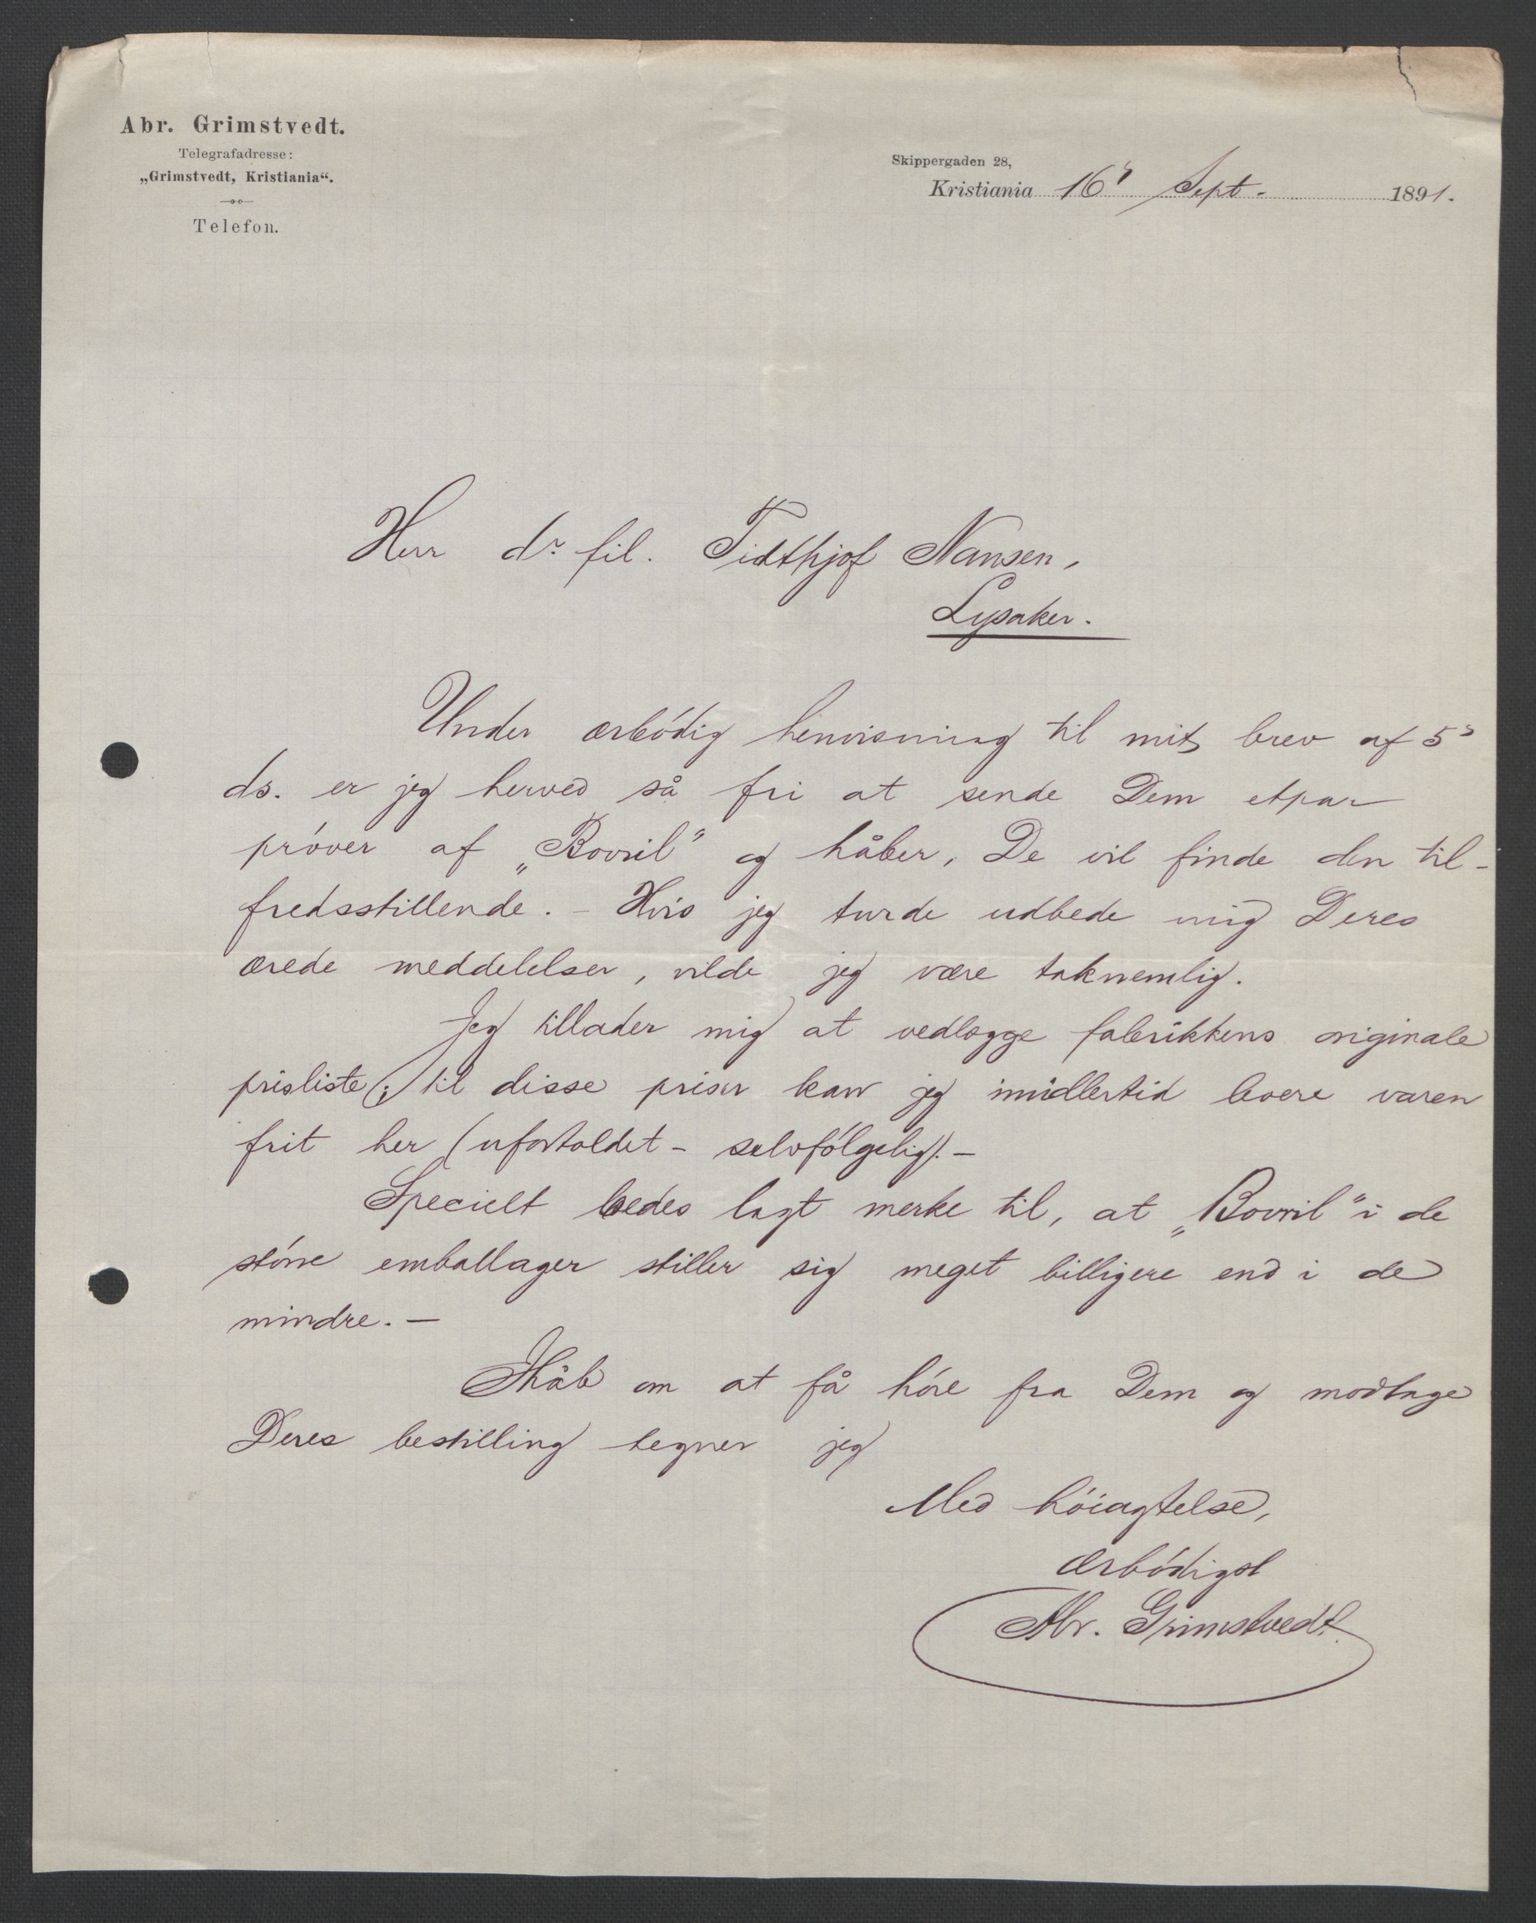 Abr. Grimstvedt.
Telegrafadresse:
„Grimstvedt, Kristiania“.
Telefon.
Skippergaden 28,
Kristiania 16' Sept. 1891.
Herr dr. fil. Fidthjof Nansen,
Lysaker.
Under ærbódig henvisning til mit brev af 5'
ds. er jeg herved så fri at sende Dem etpar
próver af „Bovril“ og håber, De vil finde den til-
fredsstillende. - Hvis jeg turde udbede mig Deres
ærede meddelelser, vilde jeg være taknemlig.
Jeg tillader mig at vedlægge fabrikkens originale
prisliste; til disse priser kan jeg imidlertid levere varen
frit her (ufortoldet - selvfólgelig). -
Specielt bedes lagt merke til, at „Bovril“ i de
större emballager stiller sig meget billigere end i de
mindre. -
I håb om at få höre fra Dem og modtage
Deres bestilling tegner jeg
Med hóiagtelse,
ærbódigst
Abr. Grimstvedt.